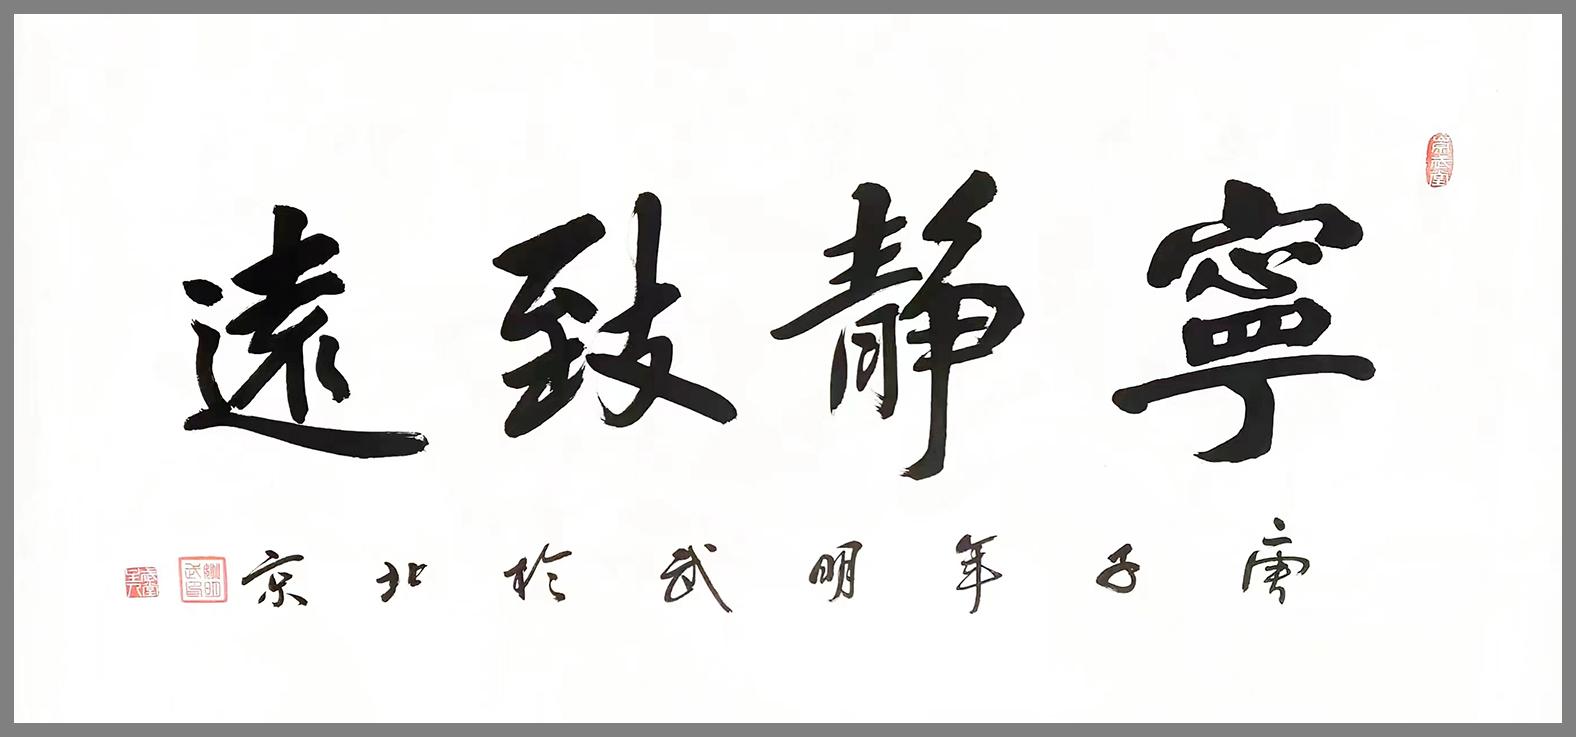 寧靜致遠
庚子年明武於北京